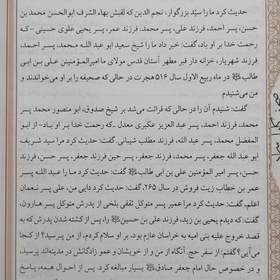 حدیث کرد ما را سیّد بزرگوار، نجم الدین که لقبش بهاء الشرف ابوالحسن محمد بن
حسن، پسر احمد، فرزند علی، پسر محمد، فرزند عمر، پسر یحیی علوی حسینی -که
رحمت خدا بر او باد، گفت: خبر داد ما را شیخ سعید ابو عبد الله محمد، پسر احمد،
فرزند شهریار، خزانه دار قبر مطهر آستان قدس مولای ما امیرالمؤمنین علی بن ابی
طالب در ماه ربیع الاول سال ۵۱۶ هجرت در حالی که صحیفه را پر او می‌خواندند و
من می‌شنیدم
گفت: شنیدم آن را در حالی که قرائت می‌شد بر شیخ صدوق، ابو منصور محمد پسر
محمد، فرزند احمد، پسر عبد العزیز عکبری معدل ـکه رحمت خدا بر او باد- از ابو
المفضل محمد پسر عبد الله، فرزند مطلب شیبانی گفت: حدیث کرد ما را سید شریف
ابو عبد الله جعفر، پسر محمد، فرزند جعفر، پسر حسن، فرزند جعفر، پسر حسن، فرزند
حسن، پسر امیر المؤمنین علی بن ابی طالب گفت: حدیث کرد ما را عبد الله پسر
عمر بن خطاب زیت فروش در سال ۲۶۵، گفت: حدیث کرد دایی من، علی پسر نعمان
اعلم، گفت: حدیث کرد مرا عمیر پسر متوکل ثقفی بلخی از پدرش متوکل پسر هارون،
گفت که دیدم یحیی بن زید، فرزند علی بن حسین را، پس از کشته شدن پدرش که به
قصد خروج علیه بنی امیه به خراسان عازم بود، بر او سلام کردم، از من پرسید؟ از کجا
می‌آیی؟گفتم: از سفر حج. آنگاه از من و از خویشان و عمو زادگانش در مدینه‌اند پرسید،
و در خصوص حال امام جعفر صادق بسیار مبالغه کرد. پس از احوال همه، پاسخ